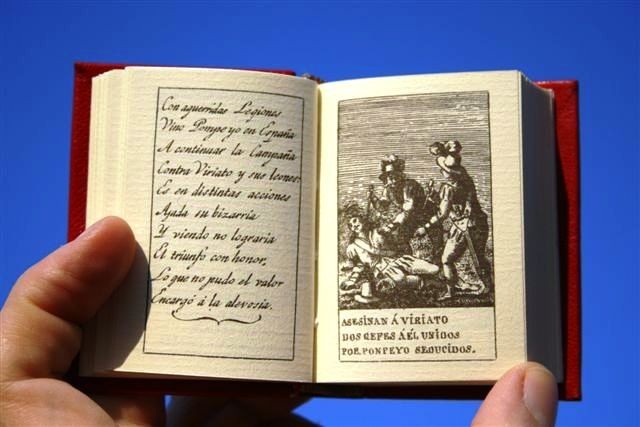 Con aguerridas Legiones
Vino Pompeyo en España
A continuar la Campaña
Contra Viriato y sus leones:
Es en distintas acciones
Ajada su bizarria
Y viendo no lograria
El triunfo con honor,
Lo que no pudo el valor
Encargó á la alevosia.
ASESINAN Á VIRIATO
DOS GEFES Á ÉL UNIDOS
POR PONPEYO SEDUCIDOS.